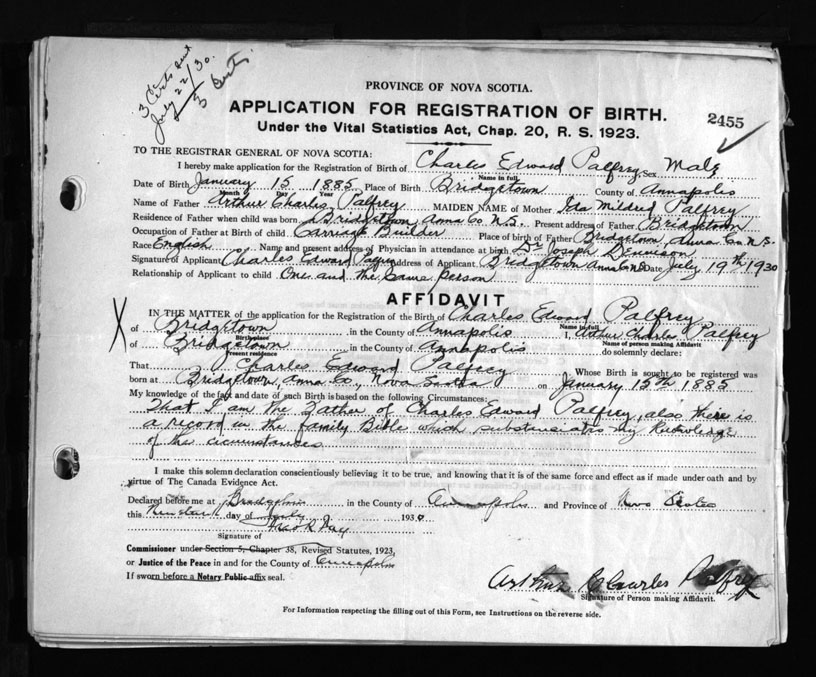 3 Certs sent
July 22/30.
3 Certs.
PROVINCE OF NOVA SCOTIA.
APPLICATION FOR REGISTRATION OF BIRTH.
2455
Under the Vital Statistics Act, Chap. 20, R. S. 1923.
TO THE REGISTRAR GENERAL OF NOVA SCOTIA:
I hereby make application for the Registration of Birth of Charles Edward Palfrey Sex Male
Name in full
Date of Birth January 15 1885 Place of Birth Bridgetown County of Annapolis
Month Day Year
Name of Father Arthur Charles Palfrey MAIDEN NAME of Mother Ida Mildred Palfrey
Residence of Father when child was born Bridgetown Anna Co N.S. Present address of Father Bridgetown
Occupation of Father at Birth of Child Carriage Builder Place of birth of Father Bridgetown, Anna Co N.S.
Race English Name and present address of Physician in attendance at birth Dr Joseph Denison
Signature of Applicant Charles Edward Palfrey Address of Applicant Bridgetown Anna Co NS Date July 19th 1930
Relationship of Applicant to child One and the same person
AFFIDAVIT
X
IN THE MATTER of the application for the Registration of the Birth of Charles Edward Palfrey
Name in full
of Bridgetown in the County of Annapolis I, Arthur Charles Palfrey
Birthplace Name of person making Affidavit
of Bridgetown in the County of Annapolis do solemnly declare:
Present residence
That Charles Edward Palfrey Whose Birth is sought to be registered was
born at Bridgetown, Anna Co, Nova Scotia on January 15th 1885
My knowledge of the fact and date of such Birth is based on the following Circumstances:
That I am the Father of Charles Edward Palfrey, also there is
a record in the family Bible which substanciates my Knowledge
of the circumstances
I make this solemn declaration conscientiously believing it to be true, and knowing that it is of the same force and effect as if made under oath and by
virtue of The Canada Evidence Act.
Declared before me at Bridgetown in the County of Annapolis and Province of Nova Scotia
this day of July 1930
Signature of
Commissioner under Section 5, Chapter 38, Revised Statutes, 1923,
or Justice of the Peace in and for the County of Annapolis
If sworn before a Notary Public affix seal.
Arthur Charles Palfrey
Signature of Person making Affidavit.
For Information respecting the filling out of this Form, see Instructions on the reverse side.